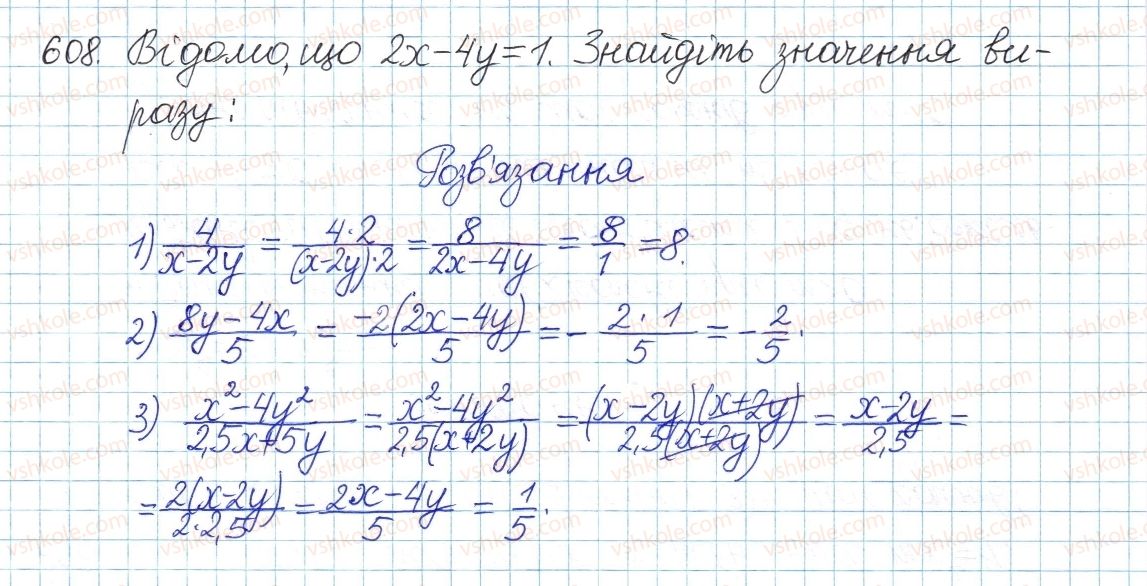 608. Відомо, що 2x-4y=1. Знайдіть значення ви-
разу:
Розв'язання
1) 4/(x-2y) = 4·2/((x-2y)·2) = 8/(2x-4y) = 8/1 = 8.
2) (8y-4x)/5 = -2(2x-4y)/5 = - 2·1/5 = - 2/5.
3) (x²-4y²)/(2,5x+5y) = (x²-4y²)/(2,5(x+2y)) = (x-2y)(x+2y)/(2,5(x+2y)) = (x-2y)/2,5 =
= 2(x-2y)/(2·2,5) = (2x-4y)/5 = 1/5.
vshkole.com